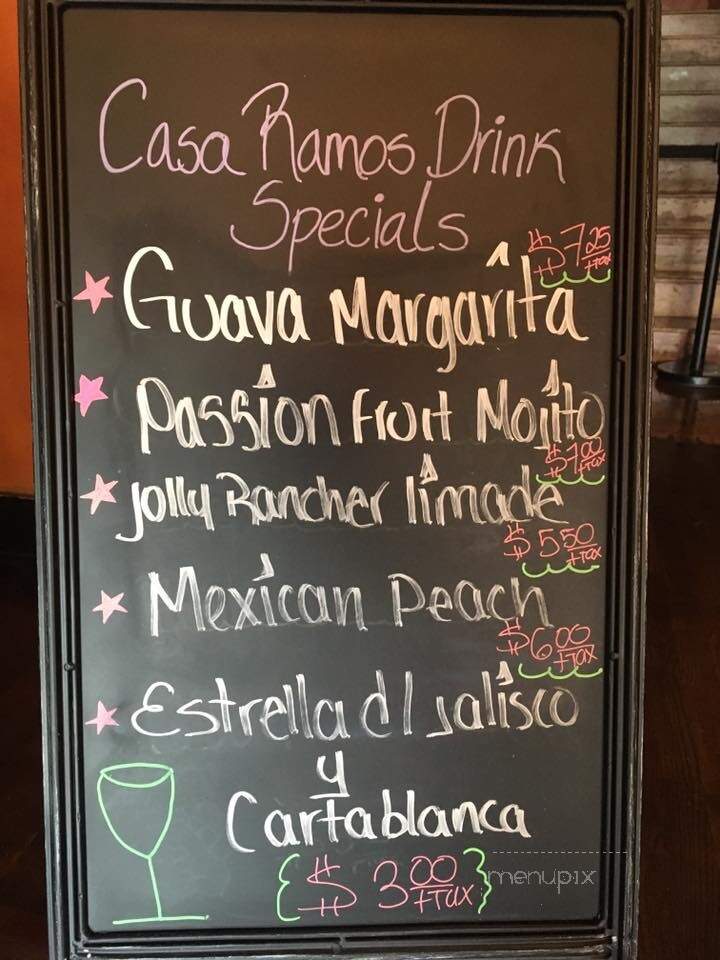 Casa Ramos Drink
Specials
$7.25
+Tax
Guava Margarita
Passion Fruit Mojito
$7.00
+Tax
Jolly Rancher limade
$5.50
+Tax
Mexican Peach
$6.00
+Tax
Estrella d/ Jalisco
y
Cartablanca
{$3.00 +Tax}
menupix